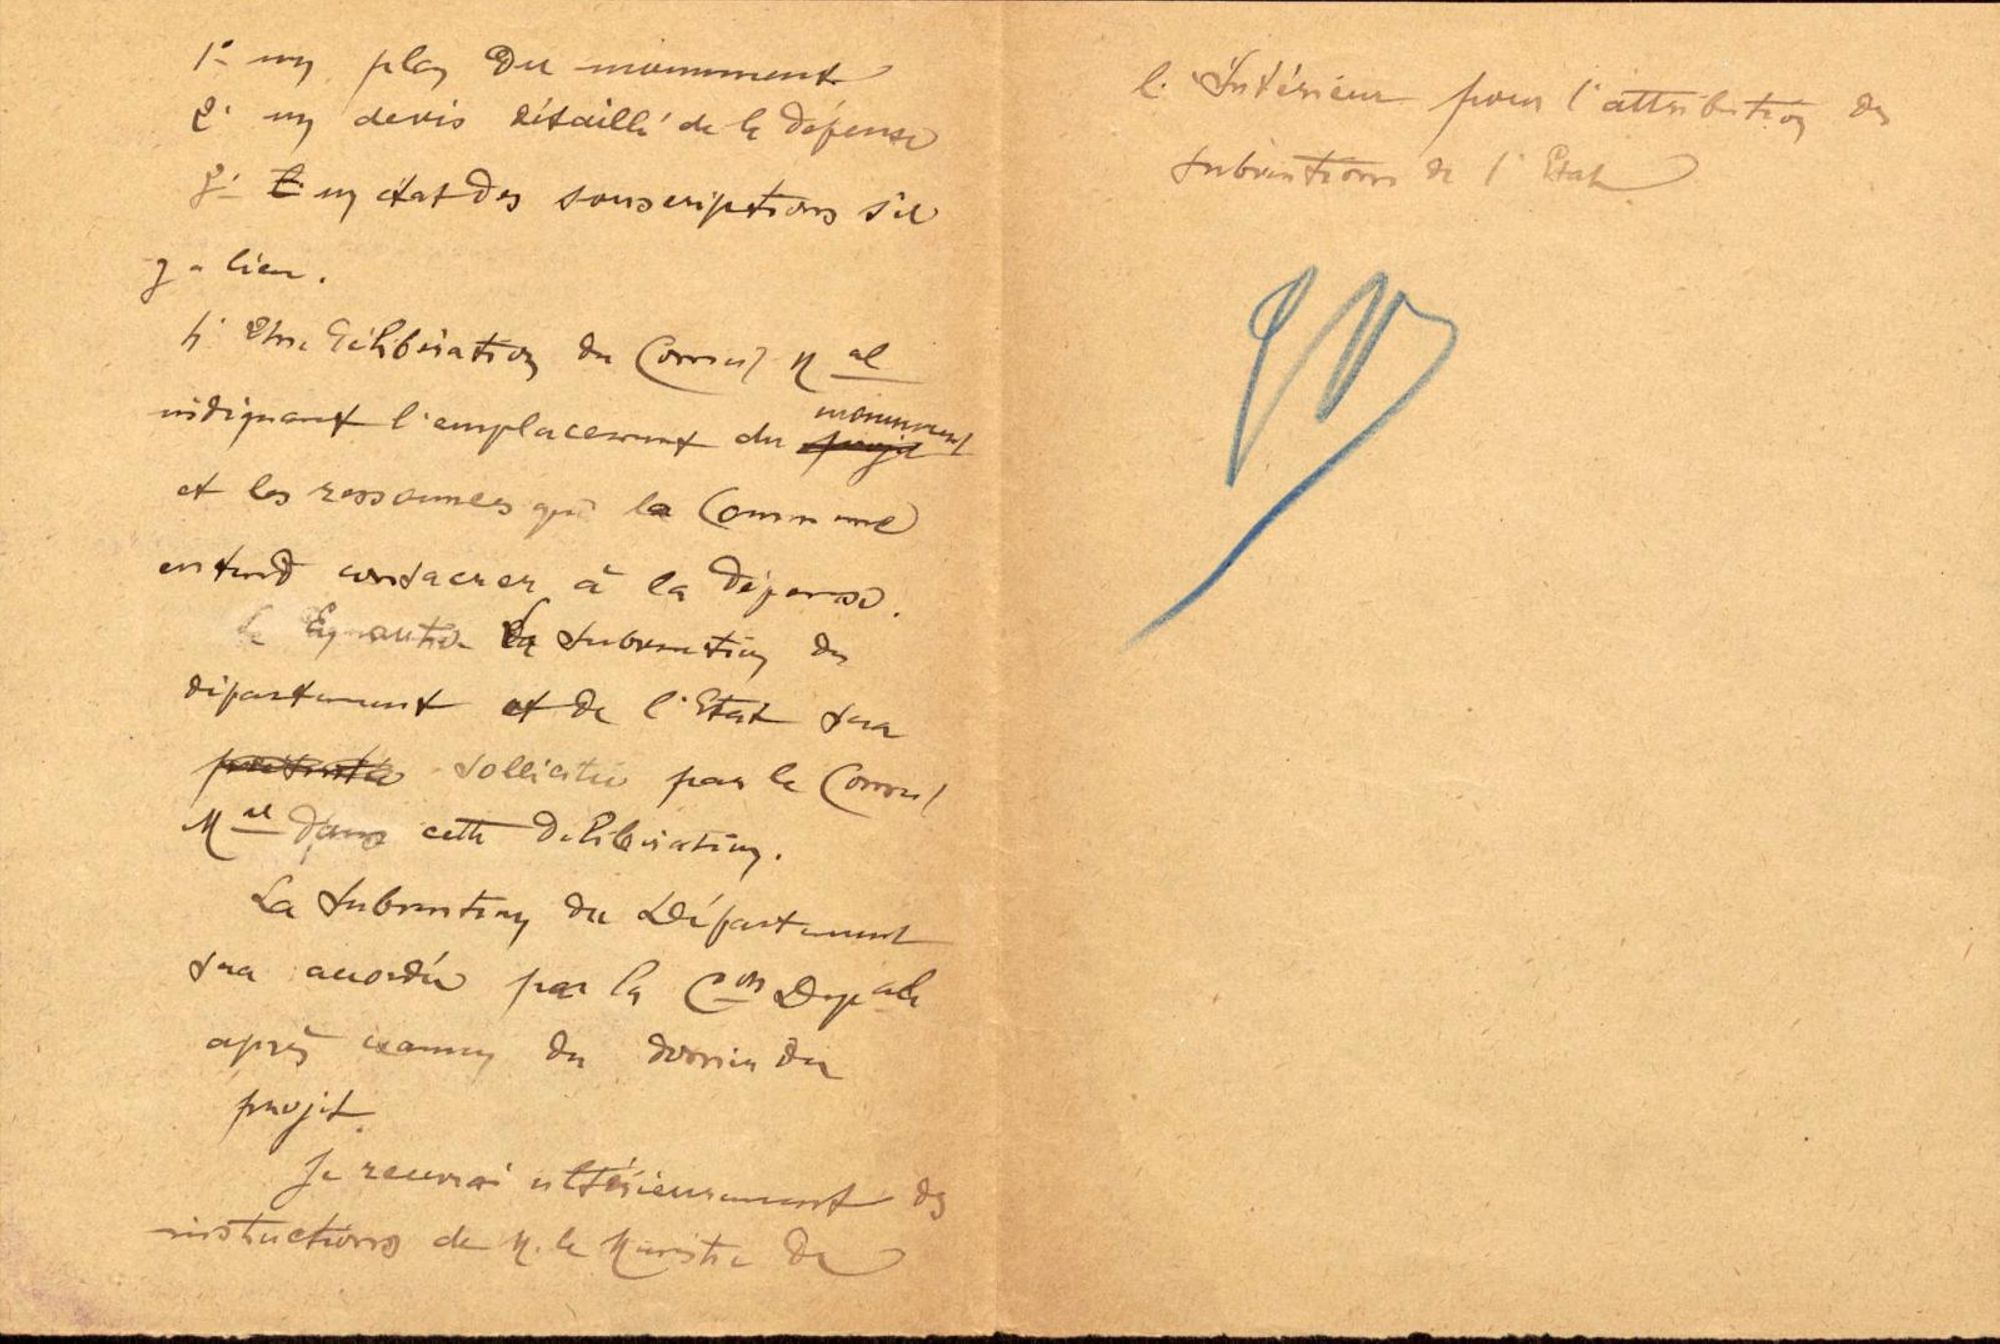 1° un plan du monument
2° un devis détaillé de la dépense
3° un état des souscriptions s'il
y a lieu.
4° Une délibération du Conseil Mal
indiquant l'emplacement du projet monument
et les ressources que la Commune
entend consacrer à la dépense.
La subvention du
département et de l'Etat sera
présentée sollicitée par le Conseil
Mal dans cette délibération.
La subvention du Département
sera accordée par la Con Depale
après examen du dossier du
projet.
Je recevrai ultérieurement des
instructions de M. le Ministre de
l'Intérieur pour l'attribution des
subventions de l'Etat